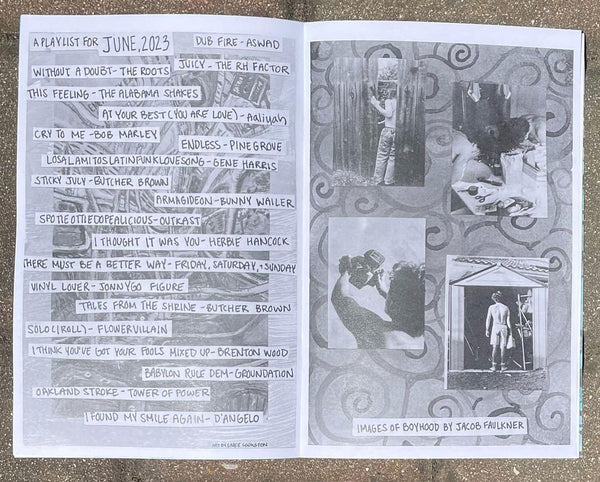 A PLAYLIST FOR JUNE, 2023
DUB FIRE - ASWAD
WITHOUT A DOUBT - THE ROOTS
JUICY - THE RH FACTOR
THIS FEELING - THE ALABAMA SHAKES
AT YOUR BEST (YOU ARE LOVE) - Aaliyah
CRY TO ME - BOB MARLEY
ENDLESS - PINEGROVE
LOSALAMITOSLATINFUNKLOVESONG - GENE HARRIS
STICKY JULY - BUTCHER BROWN
ARMAGIDEON - BUNNY WAILER
SPOTIEOTTIEDOPEALICIOUS - OUTKAST
I THOUGHT IT WAS YOU - HERBIE HANCOCK
THERE MUST BE A BETTER WAY - FRIDAY, SATURDAY, + SUNDAY
VINYL LOVER - JONNYGO FIGURE
TALES FROM THE SHRINE - BUTCHER BROWN
SOLO (ROLL) - FLOWERVILLAIN
I THINK YOU'VE GOT YOUR FOOLS MIXED UP - BRENTON WOOD
BABYLON RULE DEM - GROUNDATION
OAKLAND STROKE - TOWER OF POWER
I FOUND MY SMILE AGAIN - D'ANGELO
IMAGES OF BOYHOOD BY JACOB FAULKNER